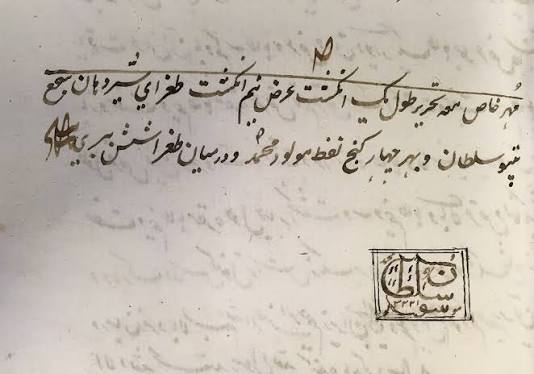 مُهر خاص تحریر طول یک انکشت عرض نیم انکشت طغرای شیر دهان سجع
تیپو سلطان و بهر چهار کنج نقط مولود محمد و درمیان طغرا شش ببری
سلطان